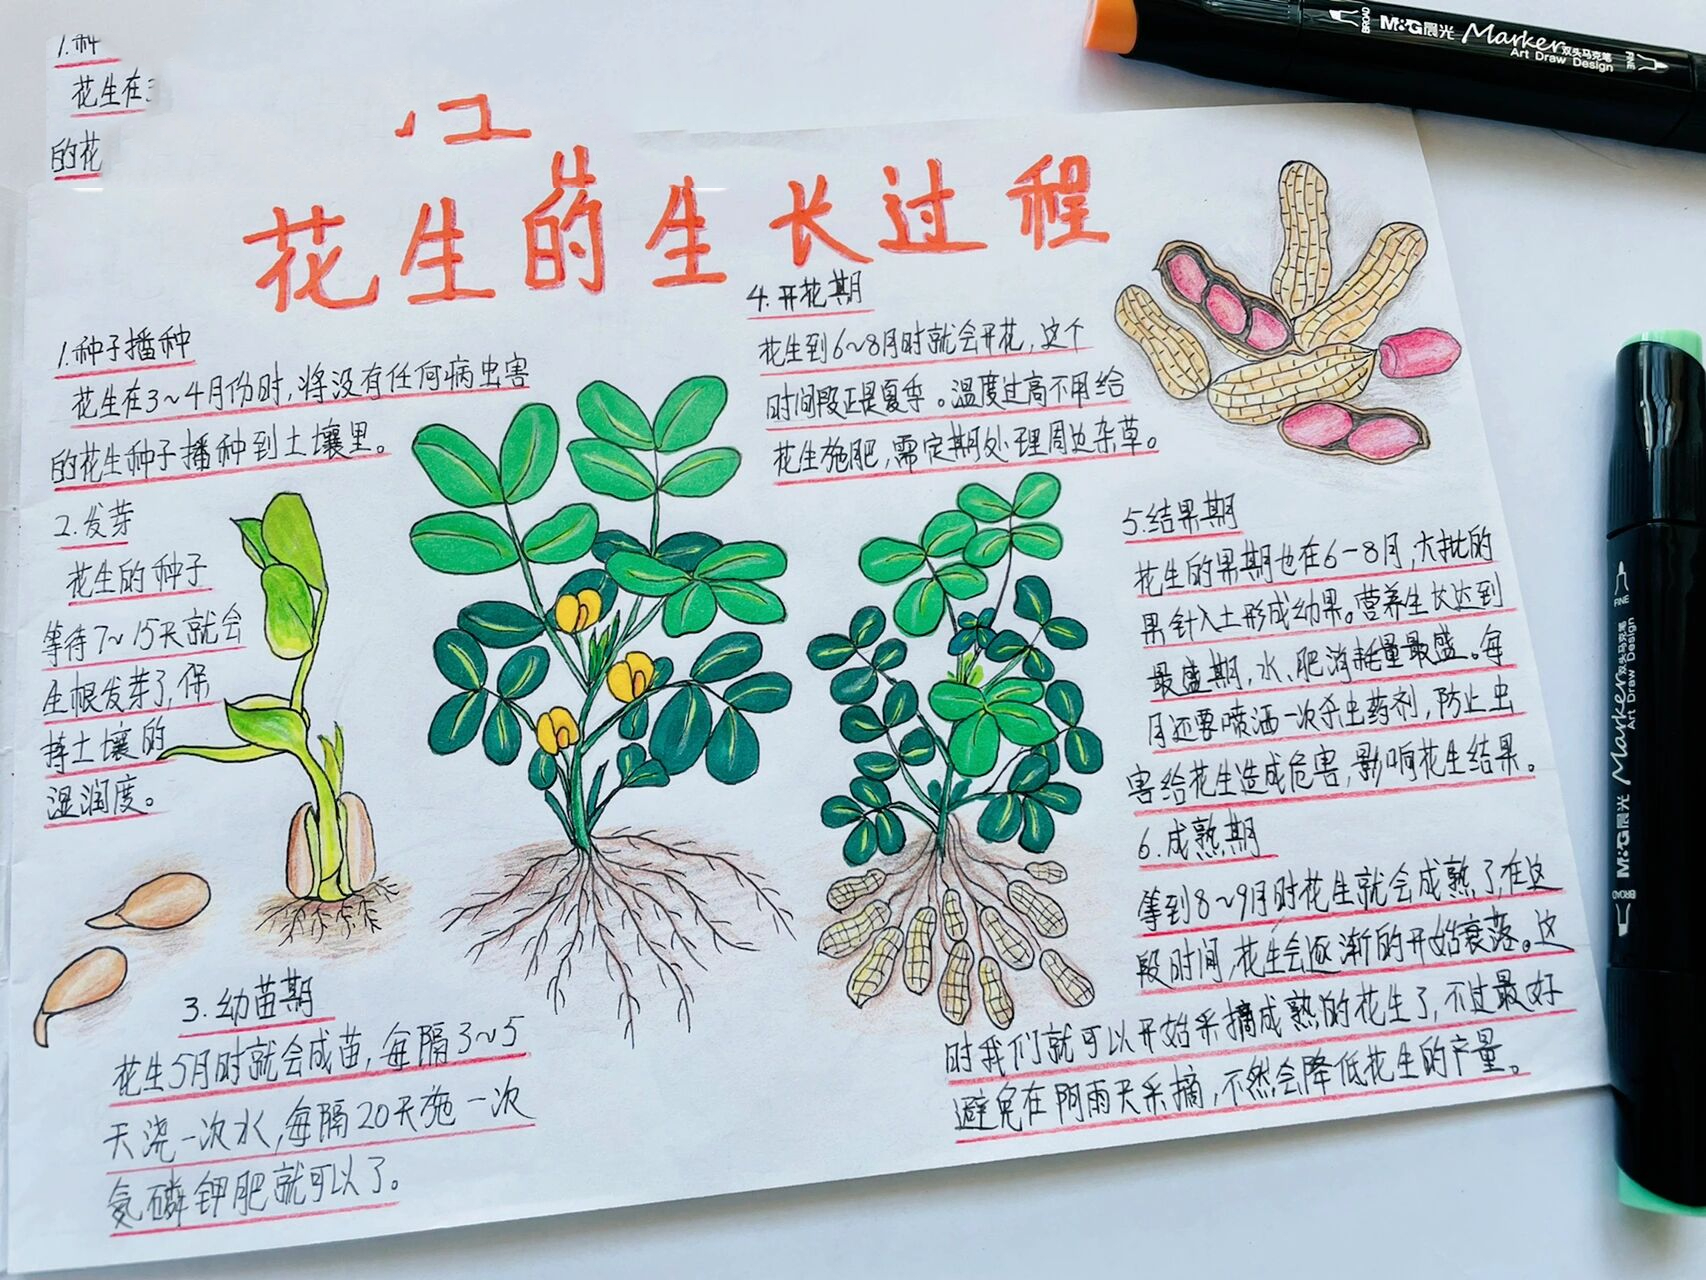 花生的生长过程
1.种子播种
花生在3~4月份时,将没有任何病虫害
的花生种子播种到土壤里。
2.发芽
花生的种子
等待7~15天就会
生根发芽了,保
持土壤的
湿润度。
3.幼苗期
花生5月时就会成苗,每隔3~5
天浇一次水,每隔20天施一次
氮磷钾肥就可以了。
4.开花期
花生到6~8月时就会开花,这个
时间段正是夏季。温度过高不用给
花生施肥,需定期处理周边杂草。
5.结果期
花生的果期也在6-8月,大批的
果针入土形成幼果。营养生长达到
最盛期,水、肥消耗量最盛。每
月还要喷洒一次杀虫药剂,防止虫
害给花生造成危害,影响花生结果。
6.成熟期
等到8~9月时花生就会成熟了,在这
段时间,花生会逐渐的开始衰落。这
时我们就可以开始采摘成熟的花生了,不过最好
避免在阴雨天采摘,不然会降低花生的产量。
花生在
的花
BROAD M&G晨光 Marker 双头马克笔 Art Draw Design FINE
BROAD M&G晨光 Marker 双头马克笔 Art Draw Design FINE